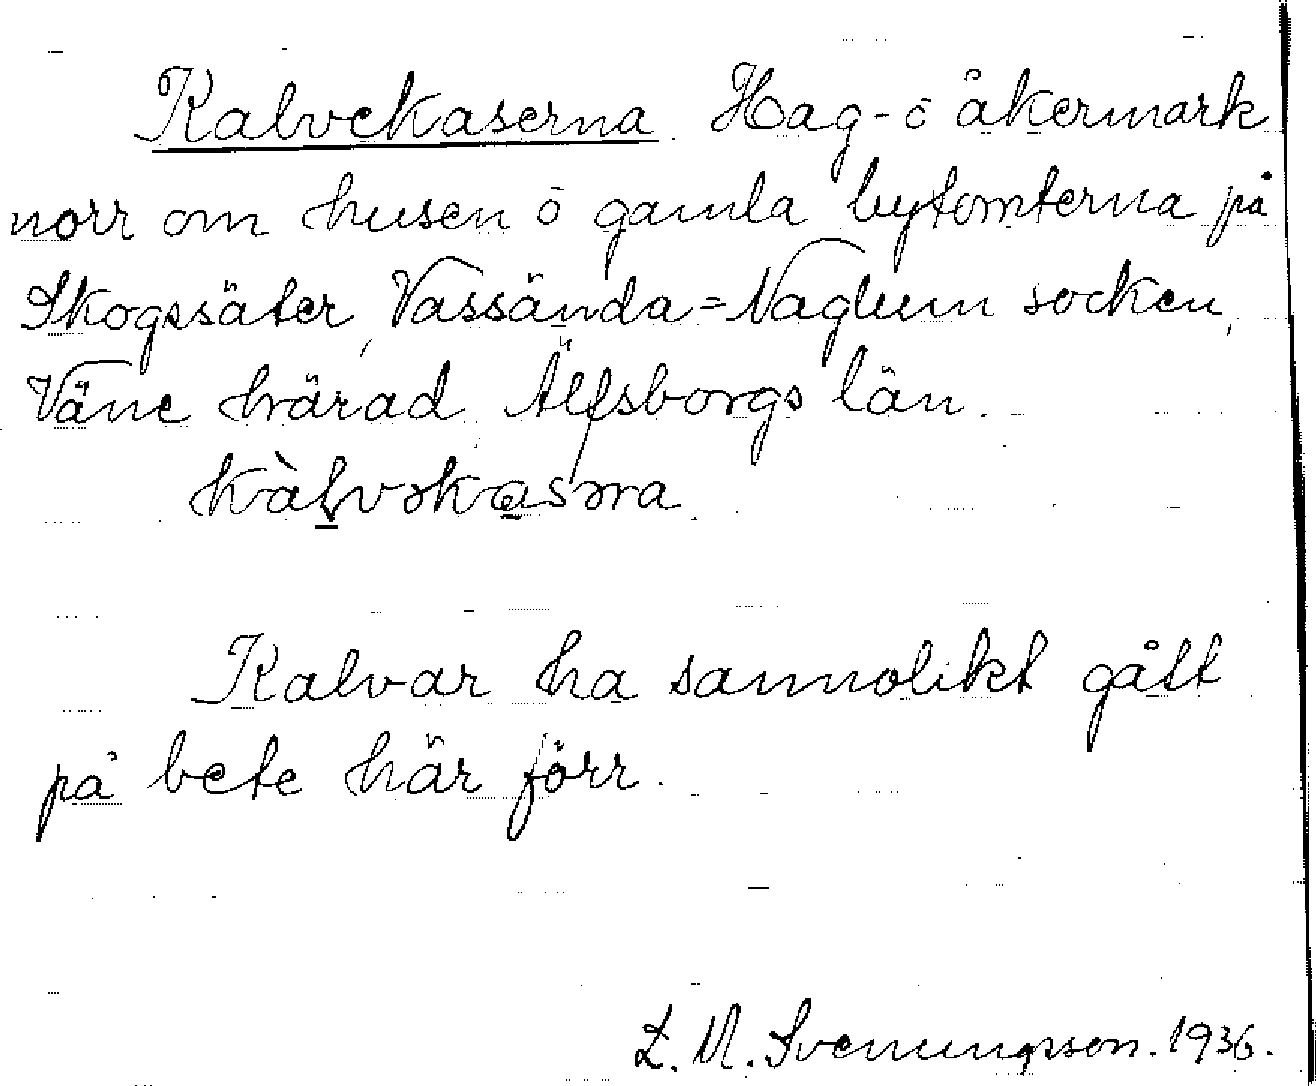 Kalvekaserna. Hag- ō åkermark
norr om husen ō gamla bytomterna på
Skogssäter, Vassända=Naglum socken,
Väne härad, Älfsborgs län.
Kalvar ha sannolikt gått
på bete här förr.
L. M. Svenungsson. 1936.